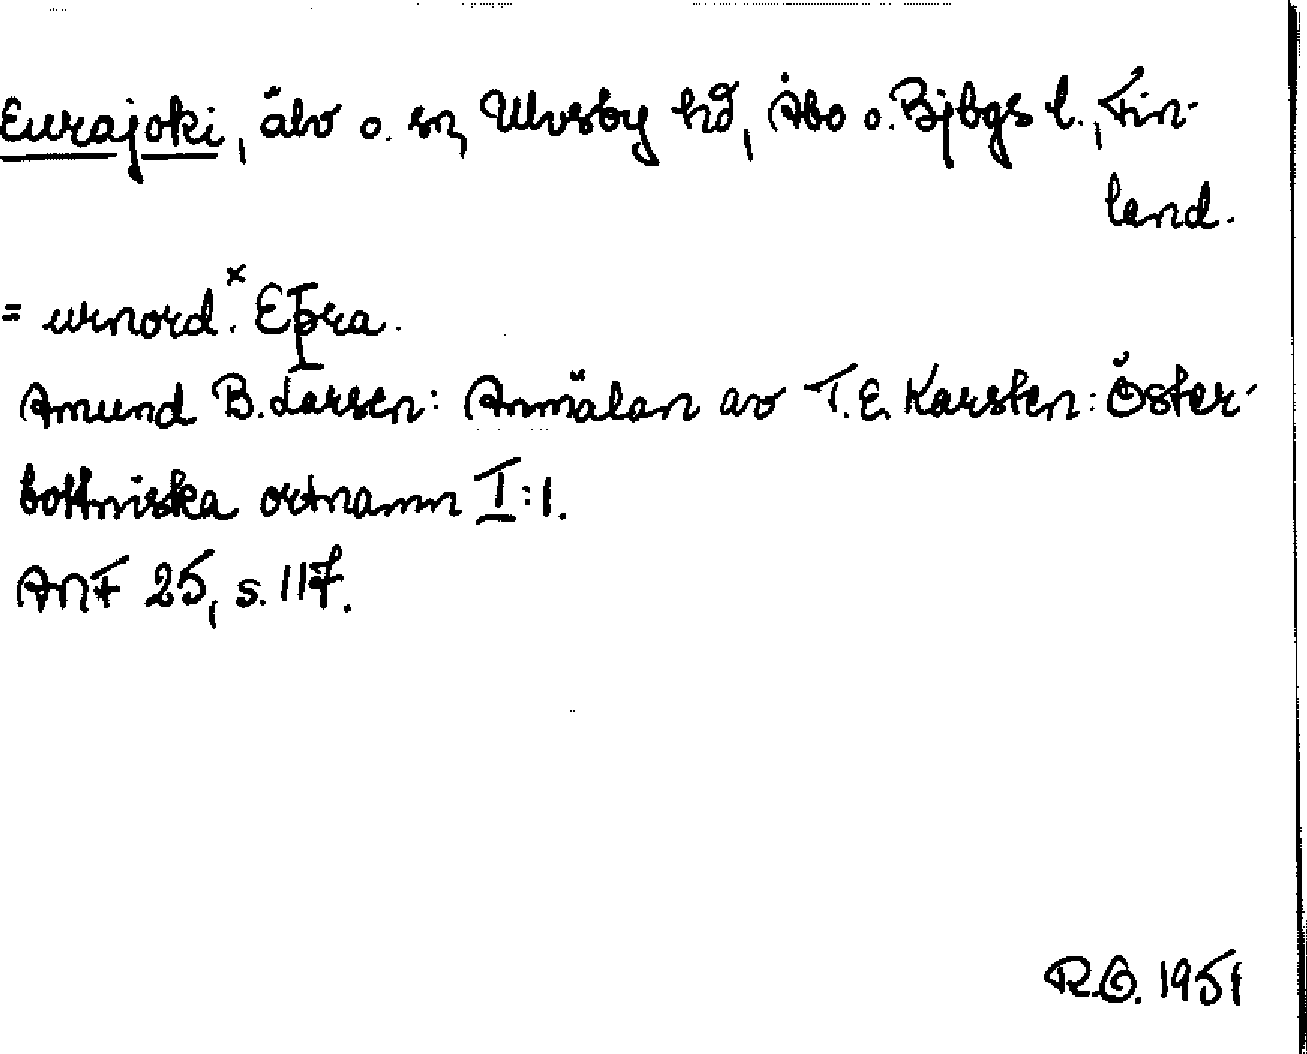 Eurajoki, älv o. sn, Ulvsby hd, Åbo o. Bjbgs l., Fin-
land.
= urnord. *Eþra.
Amund B. Larsen: Anmälan av T. E. Karsten: Öster-
bottniska ortnamn I:1.
ANF 25, s. 117.
R.O. 1951